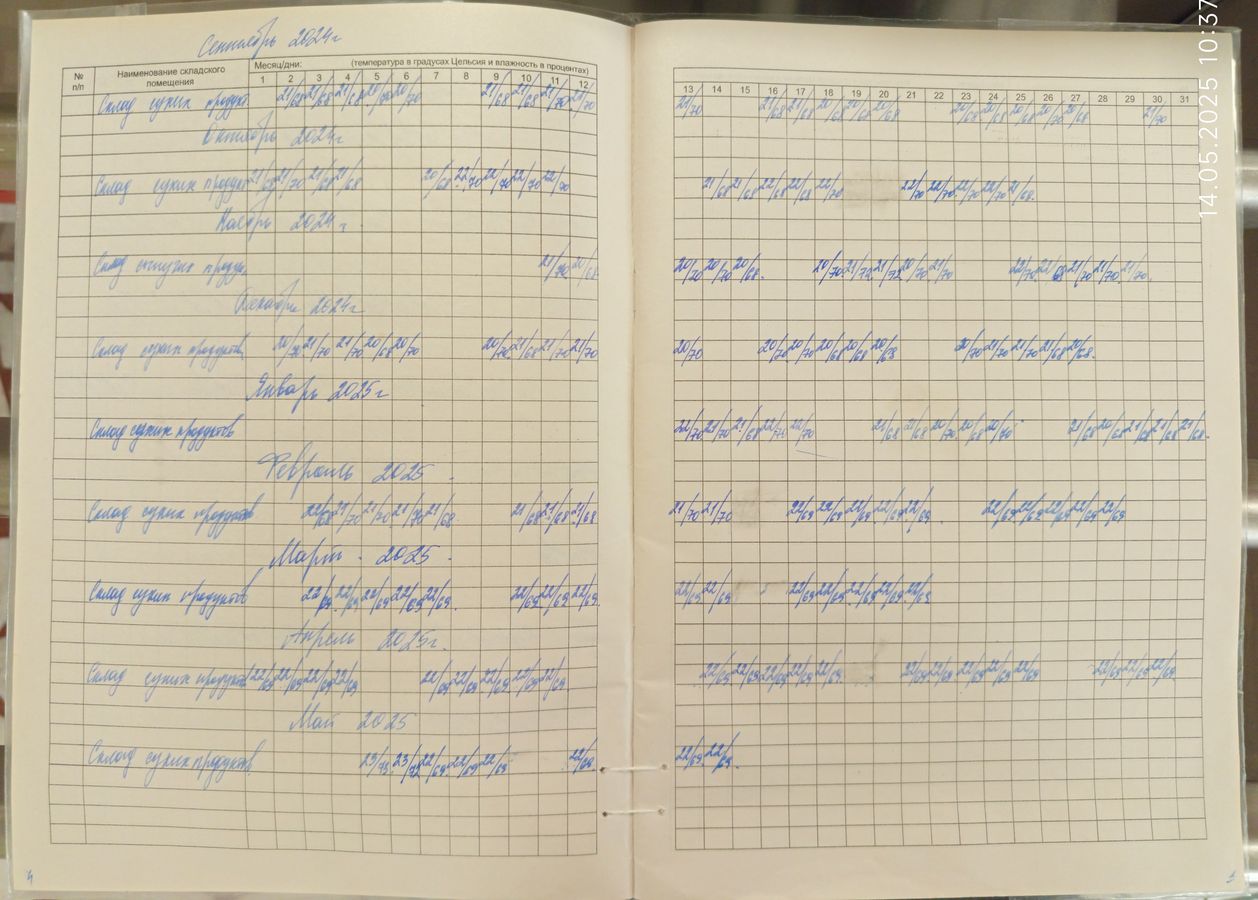 Сентябрь 2024г
№ п/п
Наименование складского помещения
Месяц/дни: (температура в градусах Цельсия и влажность в процентах)
1 2 3 4 5 6 7 8 9 10 11 12 13 14 15 16 17 18 19 20 21 22 23 24 25 26 27 28 29 30 31
Склад сухих продукт 21/68 21/68 21/68 20/70 20/70 21/68 21/68 21/70 21/70 21/70 21/68 21/68 20/68 20/68 20/68 20/68 20/68 20/68 20/70 20/68 21/70
Октябрь 2024г
Склад сухих продукт 21/68 21/70 21/68 21/68 20/68 22/70 22/70 22/70 22/70 21/68 21/68 22/68 22/68 22/70 22/70 22/70 22/70 22/70 21/68.
Ноябрь 2024г.
Склад сыпучих продук 21/70 20/68 20/70 20/70 20/68. 20/70 21/72 21/72 20/70 21/70 22/70 22/68 21/70 21/70 21/70.
Декабрь 2024г
Склад сухих продуктов 20/70 21/70 21/70 20/68 20/70 20/70 21/68 21/70 21/70 20/70 20/70 20/70 20/68 20/68 20/68 20/70 21/70 21/70 21/68 20/68.
Январь 2025г
Склад сухих продуктов 22/70 21/70 21/68 22/70 21/68 21/68 20/70 20/68 21/70 21/68 20/68 21/68 21/68 21/68.
Февраль 2025.
Склад сухих продуктов 22/68 21/70 21/70 21/70 21/68. 21/68 21/68 21/68 21/70 21/70 22/69 22/69 22/69 22/69 22/69 22/69 22/69 22/69 22/69 22/69
Март. 2025.
Склад сухих продуктов 22/69. 22/69 22/69 22/69 22/69. 22/69 22/69 22/69. 22/69 22/69 22/69 22/69 22/69 22/69 22/69
Апрель 2025г.
Склад сухих продуктов 22/69 22/69 22/69 22/69 22/69 22/69 22/69 22/69 22/69 22/69 22/69 22/69 22/69 22/69. 22/69 22/69 22/69 22/69 22/69 22/69 22/69 22/69
Май 2025
Склад сухих продуктов 23/73 23/72 22/69 22/69 22/69 22/69 22/69 22/69.
14.05.2025 10:37
4